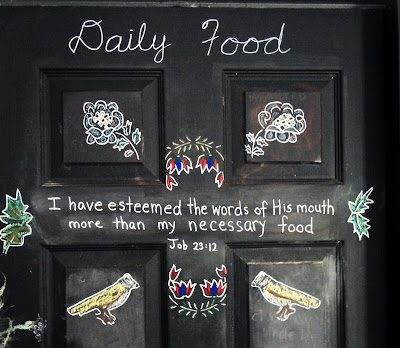 Daily Food
I have esteemed the words of His mouth
more than my necessary food
Job 23:12